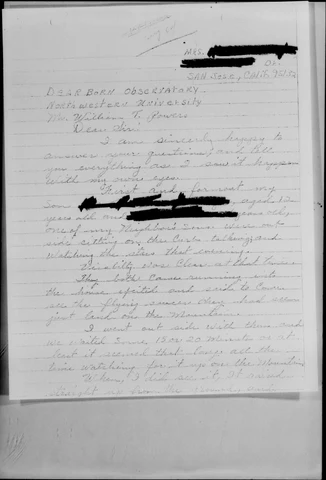 Mrs.
Dr.
San Jose, Calif.
Dearborn Observatory
Northwestern University
Mr. William T. Powers
Dear Sir:
I am sincerely happy to
answer your questions, and tell
you everything as I saw it happen
with my own eyes.
First and foremost my
Son aged 12
years old and years old,
one of my Neighbor's sons were out
side sitting on the Curb talking and
watching the stars that evening.
Visibility was Clear at that time.
They both Came running into
the house excited and said to Come
see the flying saucer they had seen
just land on the Mountain.
I went out side with them and
we waited some 15 or 20 Minutes or at
least it seemed that long all the
time watching for it up on the Mountain
When, I did see it, it raised
straight up from the ground and